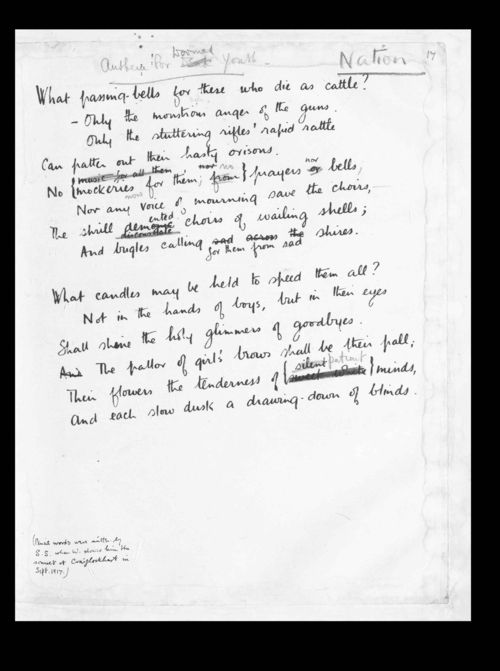 Anthem for Doomed Dead Youth.
Nation
17
What passing-bells for these who die as cattle?
- Only the monstrous anger of the guns.
Only the stuttering rifles' rapid rattle
Can patter out their hasty orisons.
music for all them, nor
No { mockeries for them; from } prayers nor or bells,
Nor any voice of mourning save the choirs,-
The shrill demented disconsolate choirs of wailing shells;
And bugles calling sad across the shires.
for them from sad
What candles may be held to speed them all?
Not in the hands of boys, but in their eyes
Shall shine the holy glimmers of goodbyes.
And The pallor of girls' brows shall be their pall;
silent patient
Their flowers the tenderness of { sweet white } minds,
And each slow dusk a drawing-down of blinds.
(Pencil words were written by
S.S. when W. showed him the
sonnet at Craiglockhart in
Sept. 1917.)